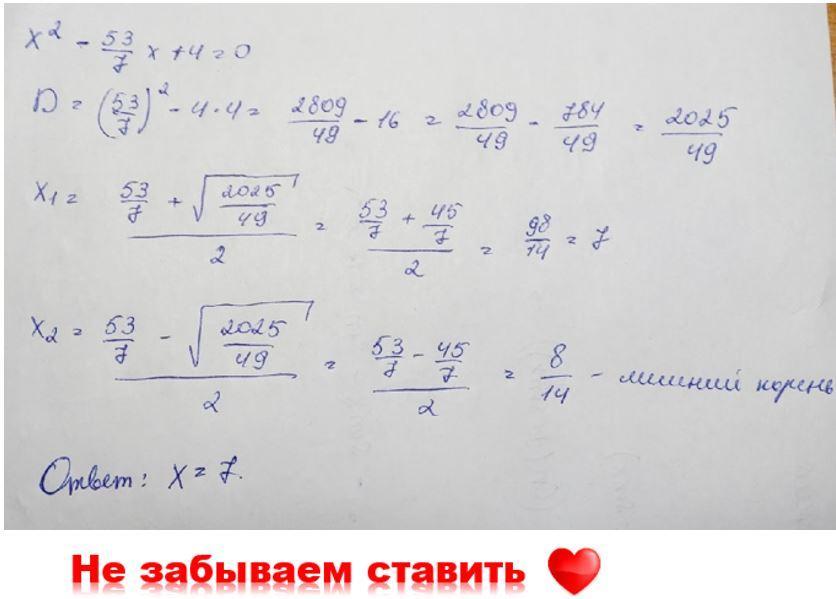 x² - 53/7 x + 4 = 0
D = (53/7)² - 4 · 4 = 2809/49 - 16 = 2809/49 - 784/49 = 2025/49
x₁ = (53/7 + √(2025/49))/2 = (53/7 + 45/7)/2 = 98/14 = 7
x₂ = (53/7 - √(2025/49))/2 = (53/7 - 45/7)/2 = 8/14 - лишний корень
Ответ: x = 7.
Не забываем ставить